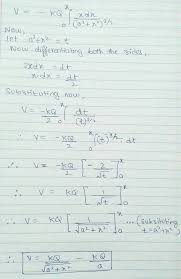 V = - KQ ∫₀ˣ xdx / (a²+x²)^3/2
Now,
let a²+x² = t
Now differentiating both the sides,
2xdx = dt
x·dx = dt/2
Substituting now,
V = -KQ/2 ∫₀ˣ dt / (t)^3/2
∴ V = -KQ/2 ∫₀ˣ (t)^-3/2 · dt
∴ V = -KQ/2 [ -2/√t ]₀ˣ
∴ V = KQ [ 1/√t ]₀ˣ
∴ V = KQ [ 1/√a²+x² ]₀ˣ ....(substituting t=a²+x²)
∴ V = KQ/√a²+x² - KQ/a